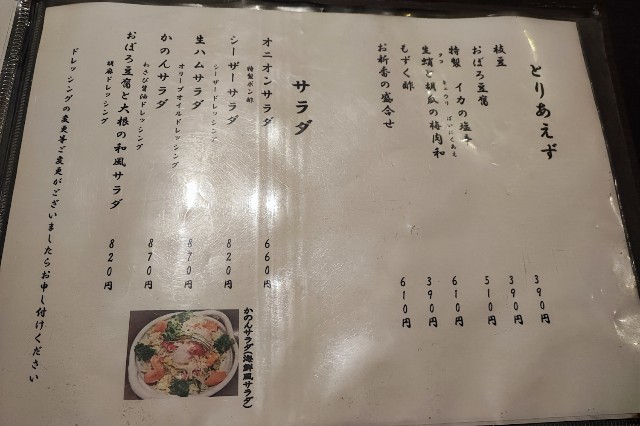 とりあえず
枝豆 390円
おぼろ豆腐 390円
特製 イカの塩辛 510円
タコ キュウリ ばいにくあえ
生蛸と胡瓜の梅肉和 610円
もずく酢 390円
お新香の盛合せ 610円
サラダ
オニオンサラダ 660円
特製ポン酢
シーザーサラダ 820円
シーザードレッシング
生ハムサラダ 870円
オリーブオイルドレッシング
かのんサラダ 870円
わさび醤油ドレッシング
おぼろ豆腐と大根の和風サラダ 820円
胡麻ドレッシング
ドレッシングの変更等ご変更がございましたらお申し付けください
かのんサラダ(海鮮風サラダ)